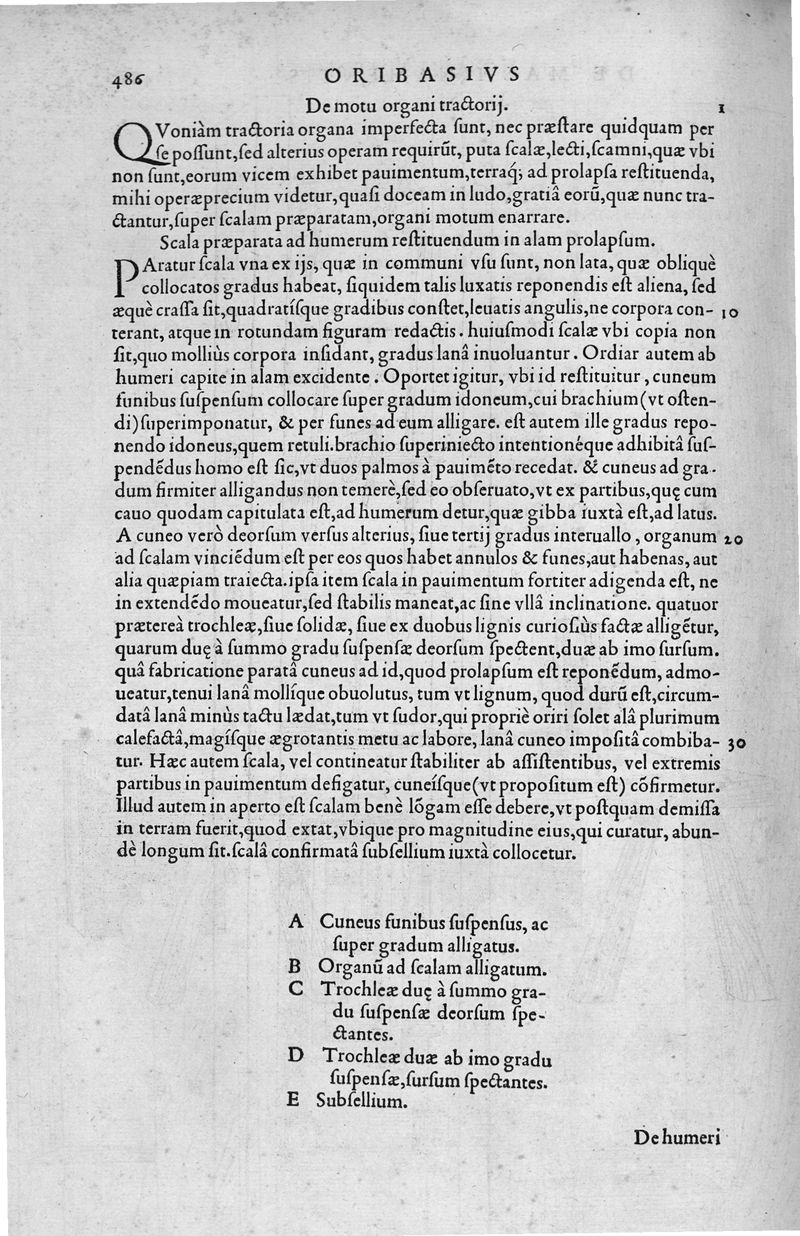 486 ORIBASIVS
De motu organi tractorij. 1
QVoniàm tractoria organa imperfecta ſunt, nec præſtare quidquam per
ſe poſſunt,ſed alterius operam requirũt, puta ſcalæ,lecti,ſcamni,quæ vbi
non ſunt,eorum vicem exhibet pauimentum,terraq́; ad prolapſa reſtituenda,
mihi operæprecium videtur,quaſi doceam in ludo,gratiâ eorũ,quæ nunc tra-
ctantur,ſuper ſcalam præparatam,organi motum enarrare.
Scala præparata ad humerum reſtituendum in alam prolapſum.
PAratur ſcala vna ex ijs, quæ in communi vſu ſunt, non lata, quæ obliquè
collocatos gradus habeat, ſiquidem talis luxatis reponendis eſt aliena, ſed
æquè craſſa ſit,quadratíſque gradibus conſtet,leuatis angulis,ne corpora con- 10
terant, atque in rotundam figuram redactis. huiuſmodi ſcalæ vbi copia non
ſit,quo molliùs corpora inſidant, gradus lanâ inuoluantur. Ordiar autem ab
humeri capite in alam excidente. Oportet igitur, vbi id reſtituitur, cuneum
funibus ſuſpenſum collocare ſuper gradum idoneum,cui brachium(vt oſten-
di)ſuperimponatur, & per funes ad eum alligare. eſt autem ille gradus repo-
nendo idoneus,quem retuli.brachio ſuperiniecto intentionéque adhibitâ ſuſ-
pendẽdus homo eſt ſic,vt duos palmos à pauimẽto recedat. & cuneus ad gra-
dum firmiter alligandus non temerè,ſed eo obſeruato,vt ex partibus,quę cum
cauo quodam capitulata eſt,ad humerum detur,quæ gibba iuxtà eſt,ad latus.
A cuneo verò deorſum verſus alterius, ſiue tertij gradus interuallo, organum 20
ad ſcalam vinciẽdum eſt per eos quos habet annulos & funes,aut habenas, aut
alia quæpiam traiecta.ipſa item ſcala in pauimentum fortiter adigenda eſt, ne
in extendẽdo moueatur,ſed ſtabilis maneat,ac ſine vllâ inclinatione. quatuor
prætereà trochleæ,ſiue ſolidæ, ſiue ex duobus lignis curioſiùs factæ alligẽtur,
quarum duę à ſummo gradu ſuſpenſæ deorſum ſpectent,duæ ab imo ſurſum.
quâ fabricatione paratâ cuneus ad id,quod prolapſum eſt reponẽdum, admo-
ueatur,tenui lanâ mollíque obuolutus, tum vt lignum, quod durũ eſt,circum-
datâ lanâ minùs tactu lædat,tum vt ſudor,qui propriè oriri ſolet alâ plurimum
calefactâ,magíſque ægrotantis metu ac labore, lanâ cuneo impoſitâ combiba- 30
tur. Hæc autem ſcala, vel contineatur ſtabiliter ab aſſiſtentibus, vel extremis
partibus in pauimentum defigatur, cuneíſque(vt propoſitum eſt) cõfirmetur.
Illud autem in aperto eſt ſcalam benè lõgam eſſe debere,vt poſtquam demiſſa
in terram fuerit,quod extat,vbique pro magnitudine eius,qui curatur, abun-
dè longum ſit.ſcalâ confirmatâ ſubſellium iuxtà collocetur.
A Cuneus funibus ſuſpenſus, ac
ſuper gradum alligatus.
B Organũ ad ſcalam alligatum.
C Trochleæ duę à ſummo gra-
du ſuſpenſæ deorſum ſpe-
ctantes.
D Trochleæ duæ ab imo gradu
ſuſpenſæ,ſurſum ſpectantes.
E Subſellium.
De humeri